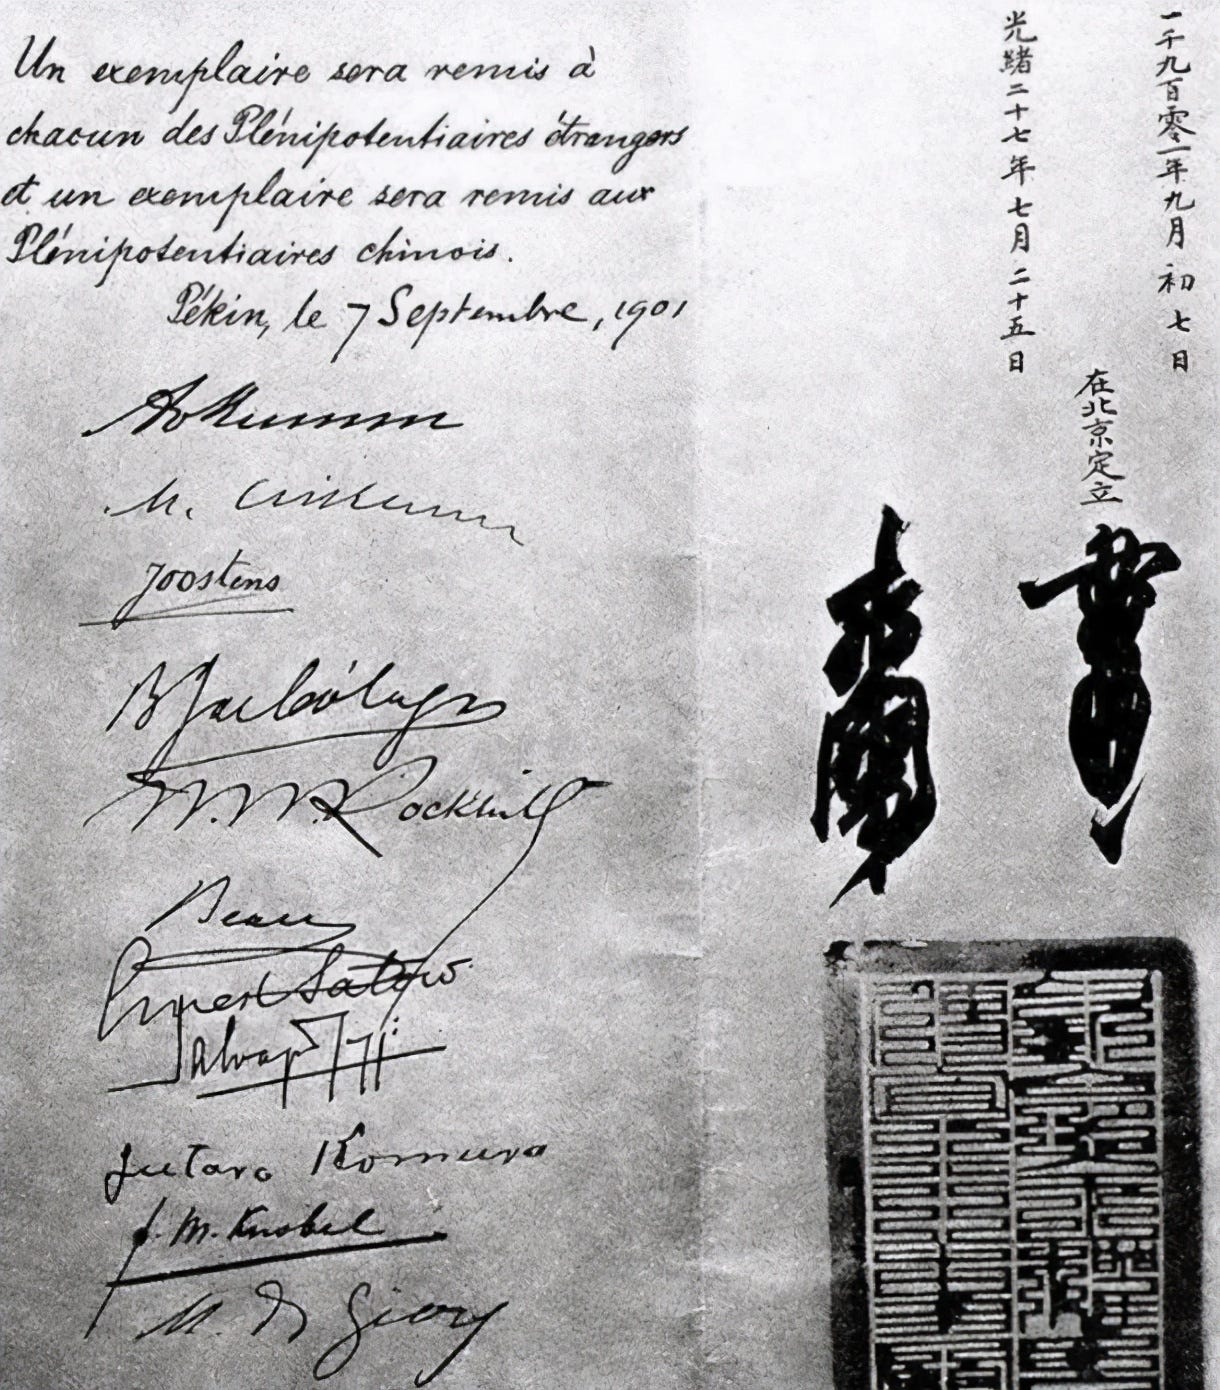 Un exemplaire sera remis à
chacun des Plénipotentiaires étrangers
et un exemplaire sera remis aux
Plénipotentiaires chinois.
Pékin, le 7 Septembre, 1901
Joostens
W. W. Rockhill
Beau
Ernest Satow
Salvago
Jutaro Komura
F. M. Knobel
M. de Giers
一千九百零一年九月初七日
光緒二十七年七月二十五日
在北京定立